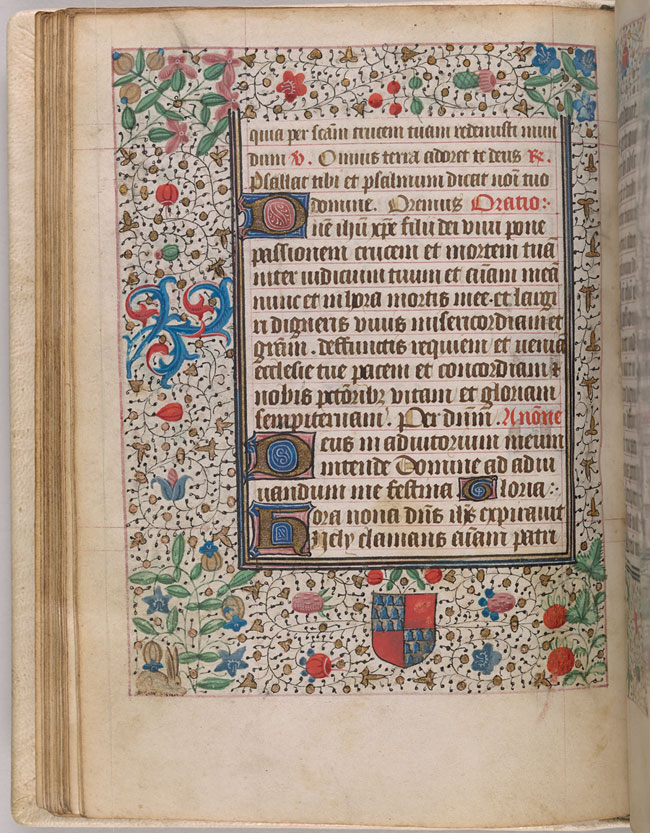 quia per scām crucem tuam redemisti mun
dum V. Omnis terra adoret te deus R.
Psallat tibi et psalmum dicat noī tuo
domine. Oremus Oratio:
Dn̄e ihū xp̄e fili dei viui pone
passionem crucem et mortem tuā
inter iudicium tuum et aīam meā
nunc et in hora mortis mee. et largi
ri digneris viuis misericordiam et
grām. deffunctis requiem et veniā
ecclesie tue pacem et concordiam &
nobis pctōribz vitam et gloriam
sempiternam. Per dūm. A none
Deus in adiutorium meum
intende Domine ad adiu
uandum me festina Gloria:
Hora nona dn̄s ihs̄ expirauit
Hely clamans aīam patri